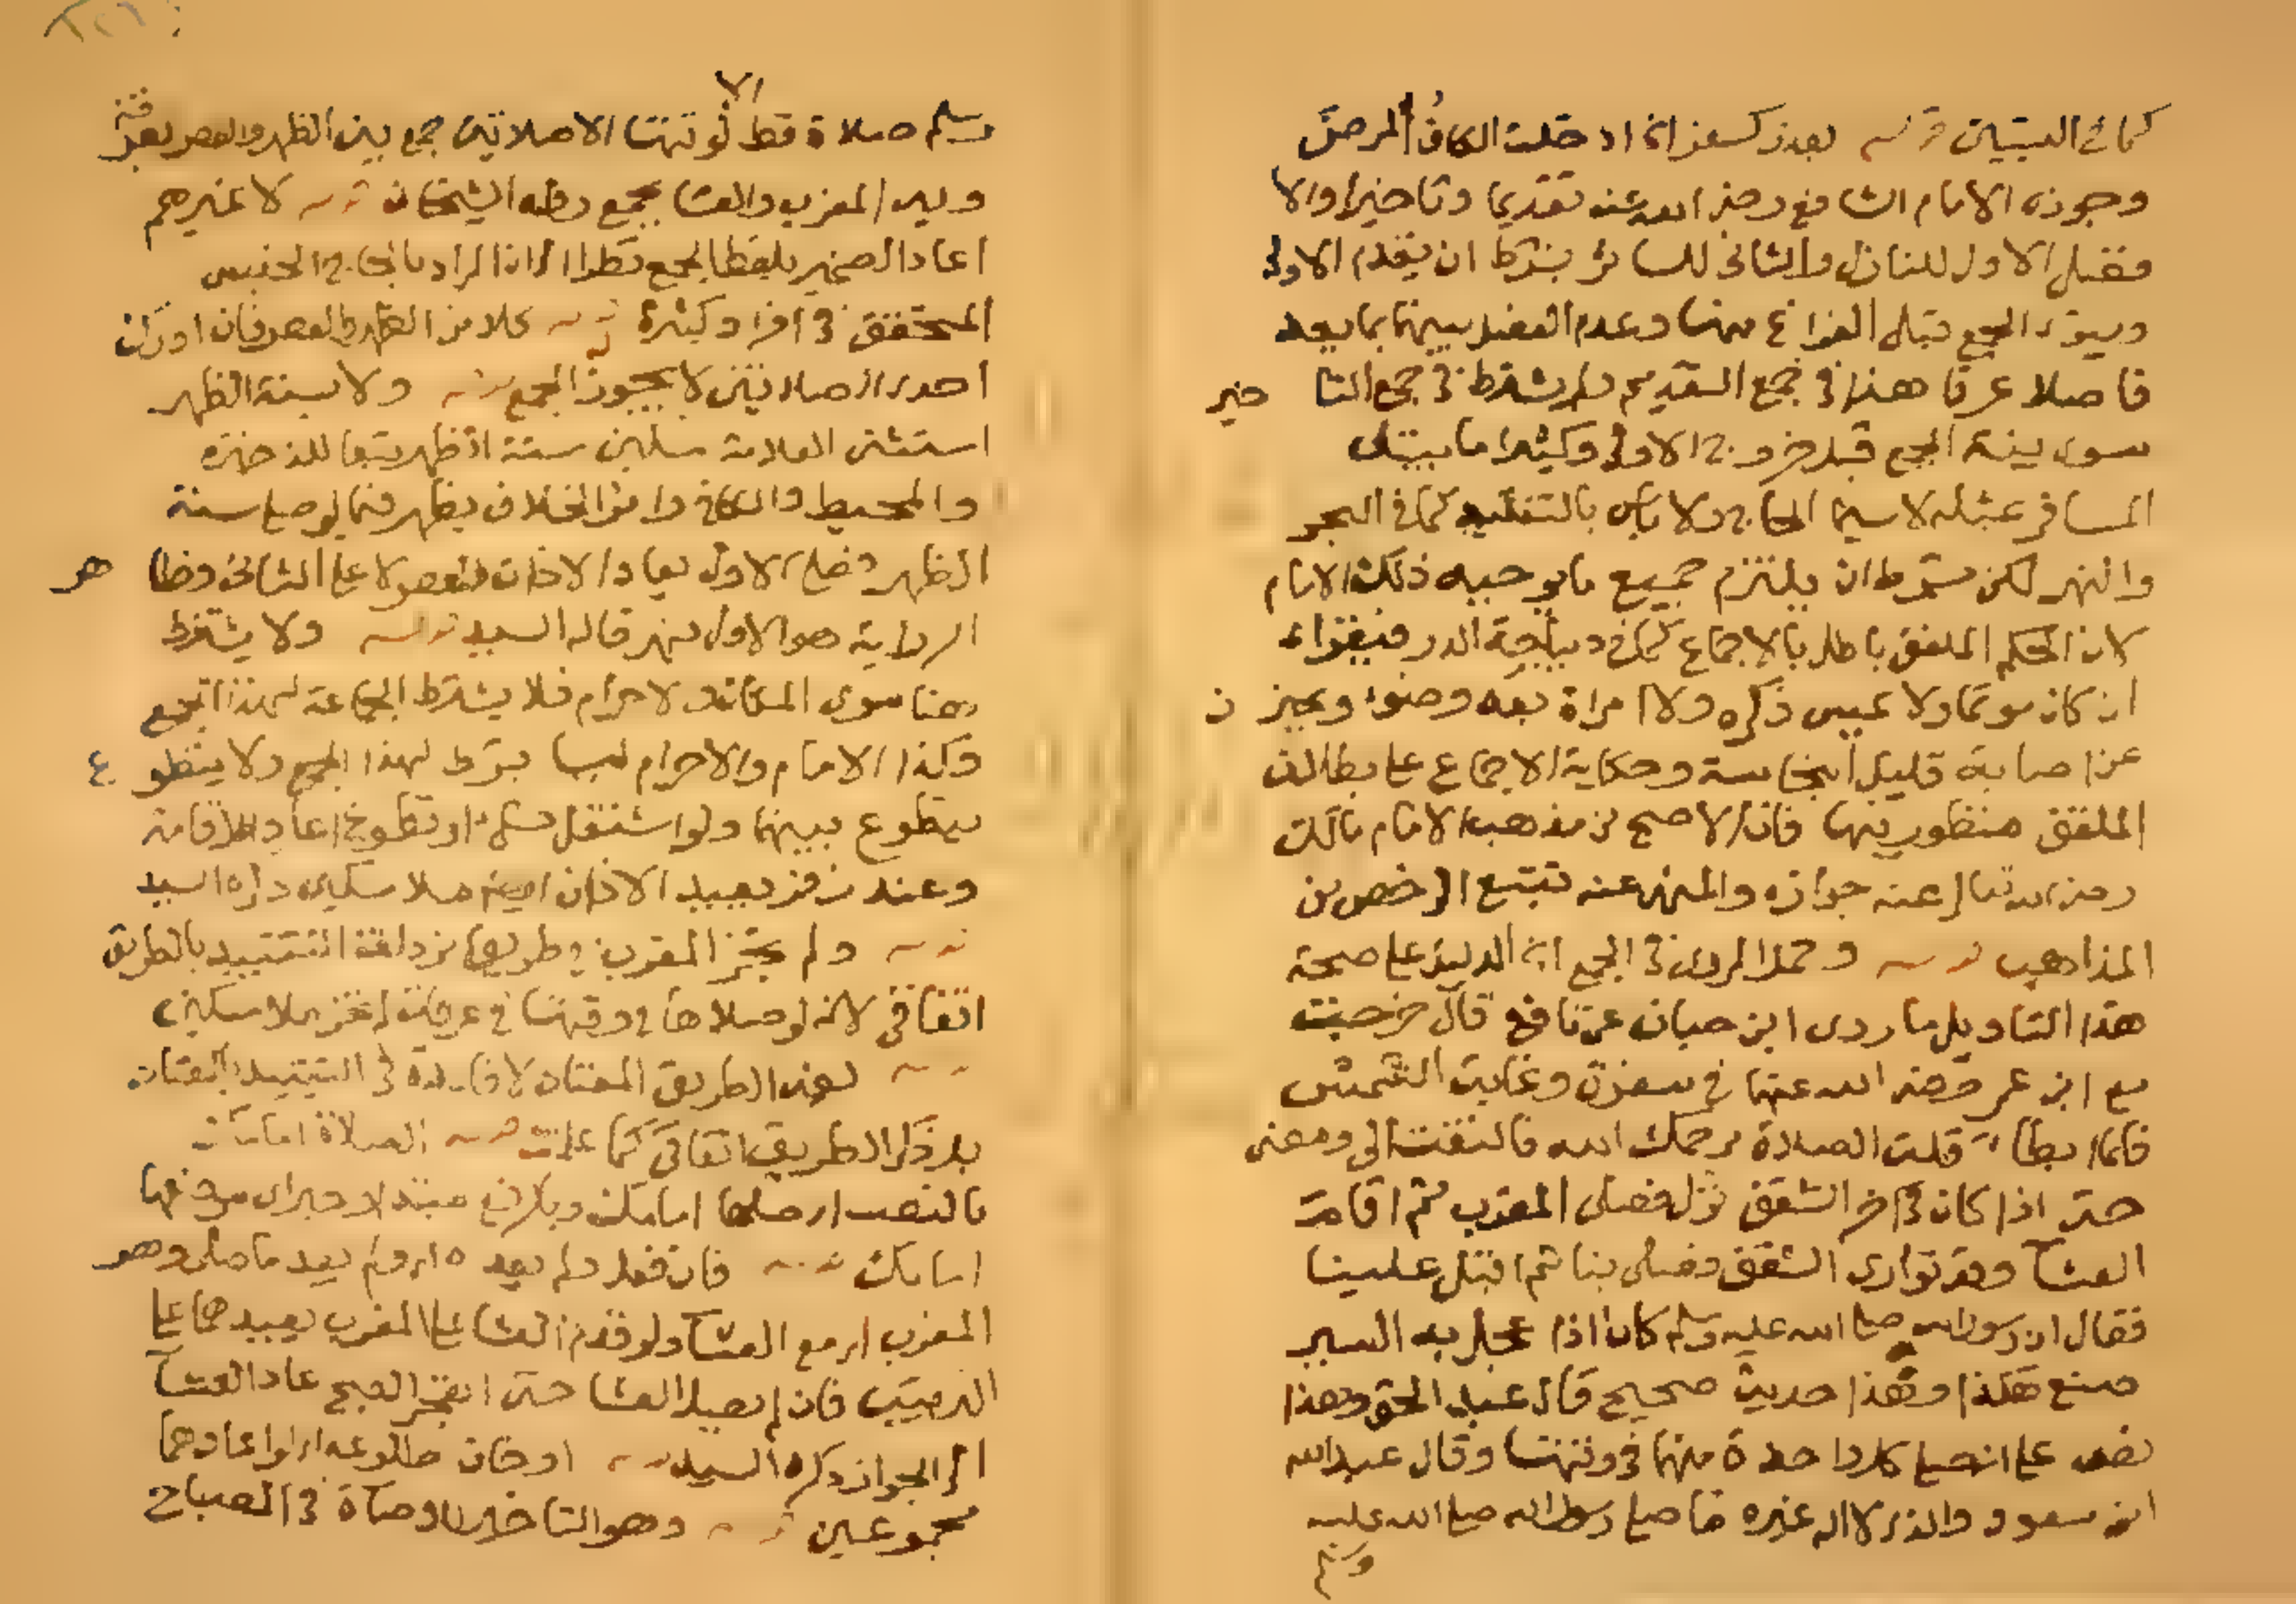 كما في التبيين قوله بعذر كسفر انما دخلت الكاف المرض
وجوزه الامام الشافعي رضي الله عنه تقديما وتاخيرا والا
فضل الاول للنازل والثاني للسائر بشرط ان يقدم الاولى
وينوي الجمع قبل الفراغ منها وعدم الفصل بينهما بما يعد
فاصلا عرفا هذا في جمع التقديم ولم يشترط في جمع التا خير
سوى نية الجمع قبل خروج الاولى وكثيرا ما يبتلى
المسافر بمثله لاسيما الحاج ولا باس بالتقليد كما في البحر
والنهر لكن بشرط ان يلتزم جميع ما يوجبه ذلك الامام
لان الحكم الملفق باطل بالاجماع كما في ديباجة الدر فيقرا
ان كان مؤتما ولا يمس ذكره ولا امراة بعد وضوء ويحتر ز
عن اصابة قليل النجاسة وحكاية الاجماع على بطلان
الملفق منظور فيها فان الاصح من مذهب الامام مالك
رضي الله تعالى عنه جوازه والمنهي عنه تتبع الرخص من
المذاهب قوله وحمل المروي في الجمع الخ الدليل على صحة
هذا التاويل ما روى ابن حبان عن نافع قال خرجت
مع ابن عمر رضي الله عنهما في سفرة وغابت الشمس
فلما ابطأ قلت الصلاة يرحمك الله فالتفت الي ومضى
حتى اذا كان في اخر الشفق نزل فصلى المغرب ثم اقام
العشآ وقد توارى الشفق فصلى بنا ثم اقبل علينا
فقال ان رسول الله صلى الله عليه وسلم كان اذا عجل به السير
صنع هكذا وهذا حديث صحيح قال عبد الحق وهذا
نص على انه صلى كل واحدة منهما في وقتها وقال عبد الله
ابن مسعود والذي لا اله غيره ما صلى رسول الله صلى الله عليه
وسلم
وسلم صلاة قط الا لوقتها الا صلاتين جمع بين الظهر والعصر بعرفة
وبين المغرب والعشا بجمع رواه الشيخان قوله لا غيرهم
اعاد الضمير بلفظ الجمع نظرا الى ان المراد بالحاج الجنس
المتحقق في افراد كثيرة قوله كلا من الظهر والعصر فان ادرك
احدى الصلاتين لا يجوز الجمع قوله ولا سنة الظهر
استثنى العلامة مسكين سنة الظهر تبعا للذخيرة
والمحيط والكافي واثر الخلاف يظهر فيما لو صلى سنة
الظهر فعلى الاول يعاد الاذان للعصر لا على الثاني وظا هر
الرواية هو الاول نهر قاله السيد قوله ولا يشترط
هنا سوى المكان والاحرام فلا يشترط الجماعة لهذا الجمع
وكذا الامام والاحرام ليسا بشرط لهذا الجمع ولا يتطو ع
يتطوع بينهما ولو اشتغل بشيء او تطوع اعاد الاقامة
وعند زفر يعيد الاذان ايضا منلا مسكين وزاده السيد
قوله ولم تجز المغرب في طريق مزدلفة التقييد بالطريق
اتفاقي لانه لو صلاها في وقتها في عرفات لم تجز منلا مسكين
قوله يعني الطريق المعتاد لا فائدة في التقييد بالمعتاد
بل ذكر الطريق اتفاقي كما علمت قوله الصلاة امامك
بالنصب اي صلها امامك وبالرفع مبتدا وخبر اي موضعها
امامك قوله فان فعل ولم يعده اي ولم يعد ما صلى وهو
المغرب او مع العشآ ولو قدم العشا على المغرب يعيدهما على
الترتيب فان لم يعد العشا حتى انفجر الصبح عاد العشآ
الى الجواز ذكره السيد قوله او خاف طلوعه اي لو اعادهما
مجموعين قوله وهو التاخير اوصآة في الصباح